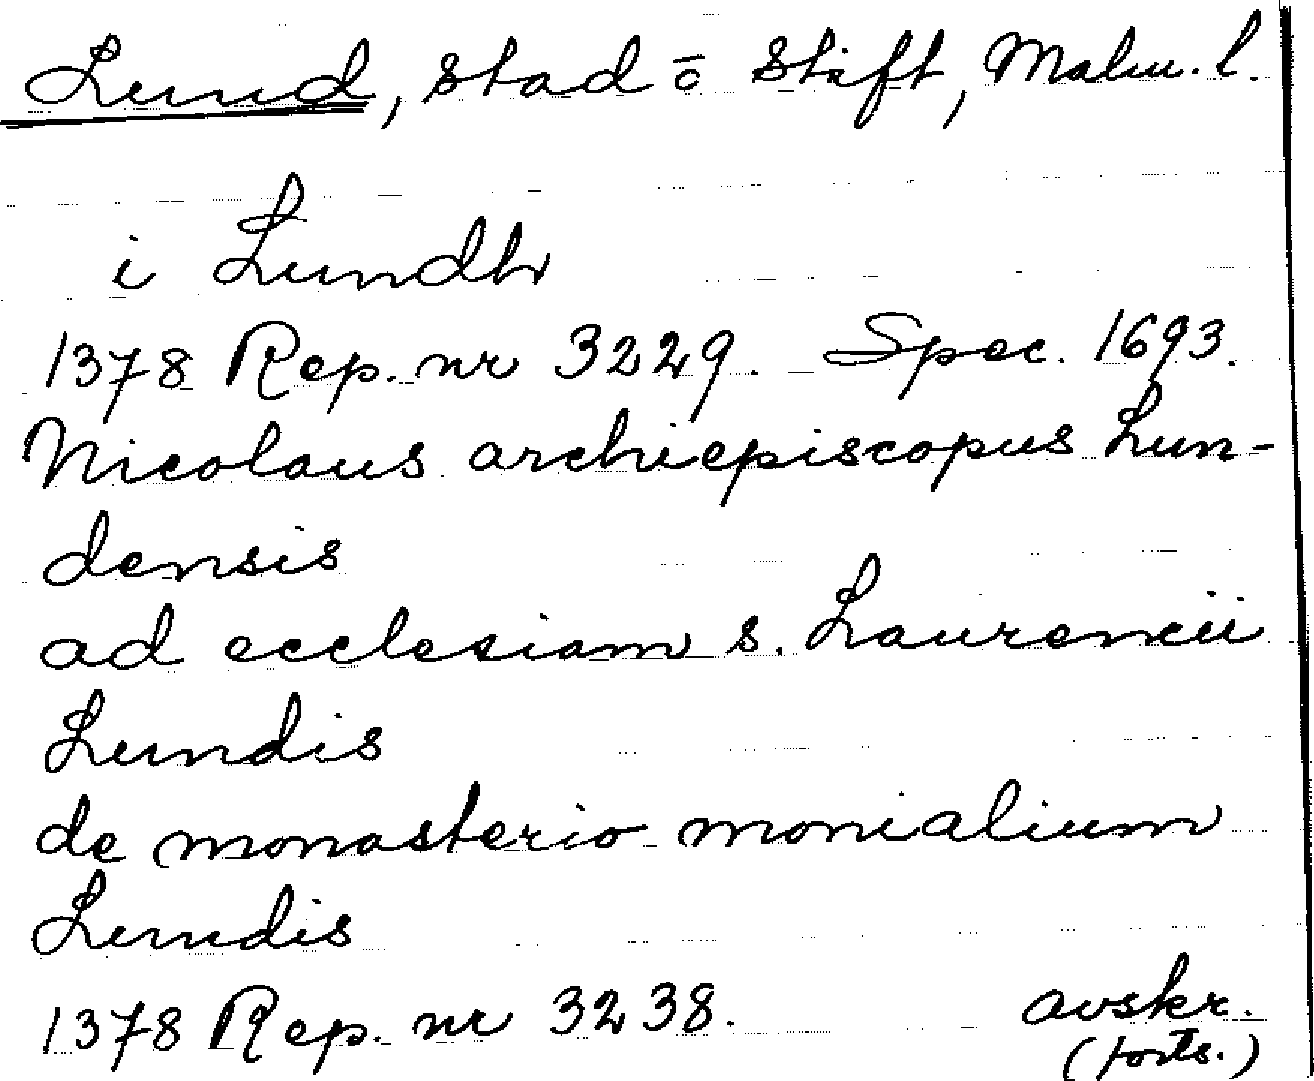 Lund, Stad o Stift, Malm. l.
i Lundh
1378 Rep. nr 3229. Spec. 1693.
Nicolaus archiepiscopus Lun-
densis
ad ecclesiam s. Laurencii
Lundis
de monasterio monialium
Lundis
1378 Rep. nr 3238. avskr.
(forts.)